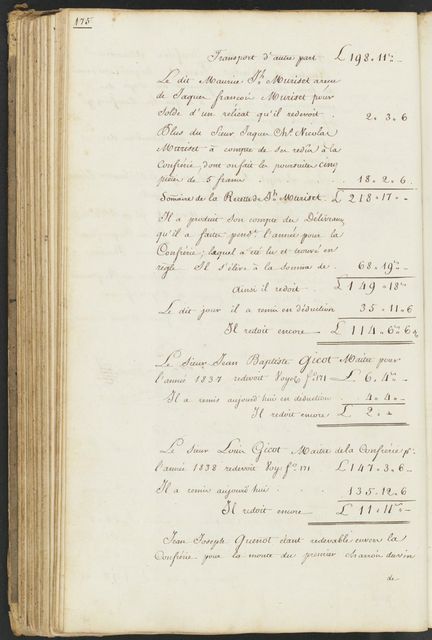 175
Transport d'autre part £ 198 = 11 s –
Le dit Maurice Jh Muriset a reçu
de Jaques françois Muriset pour
Solde d'un relicat qu'il redevoit . 2 = 3 = 6
Plus du Sieur Jaques Chs Nicolas
Muriset à compte de ses redûs à la
Confrérie, dont on fait les poursuites cinq
pièces de 5 francs 18 = 2 = 6
Somaire de la Recette de Jh Muriset . £ 218 = 17 = –
Il a produit son compte des Délivrances
qu'il a faites pendt l'année pour la
Confrérie, lequel a été lu et trouvé en
règle . Il s'élève à la somme de . 68 = 19 s –
Ainsi il redoit . £ 149 = 18 s
Le dit jour il a remis en déduction 35 = 11 = 6
Il redoit encore £ 114 = 6 = 6
Le Sieur Jean Baptiste Gicot Maitre pour
l'année 1837 redevoit Voyez fo 171 £ 6 = 4 s –
Il a remis aujourd'hui en deduction . 4 = 4 = –
Il redoit encore £ 2 = "
Le Sieur Louis Gicot Maitre de la Confrérie pr
l'année 1838 redevoit Voy. fo 171 £ 147 = 3 = 6
Il a remis aujourd'hui . . 135 = 12 = 6
Il redoit encore £ 11 = 11 s –
Jean Joseph Quenot étant redevable envers la
Confrérie pour la monte du premier charroi du vin
de